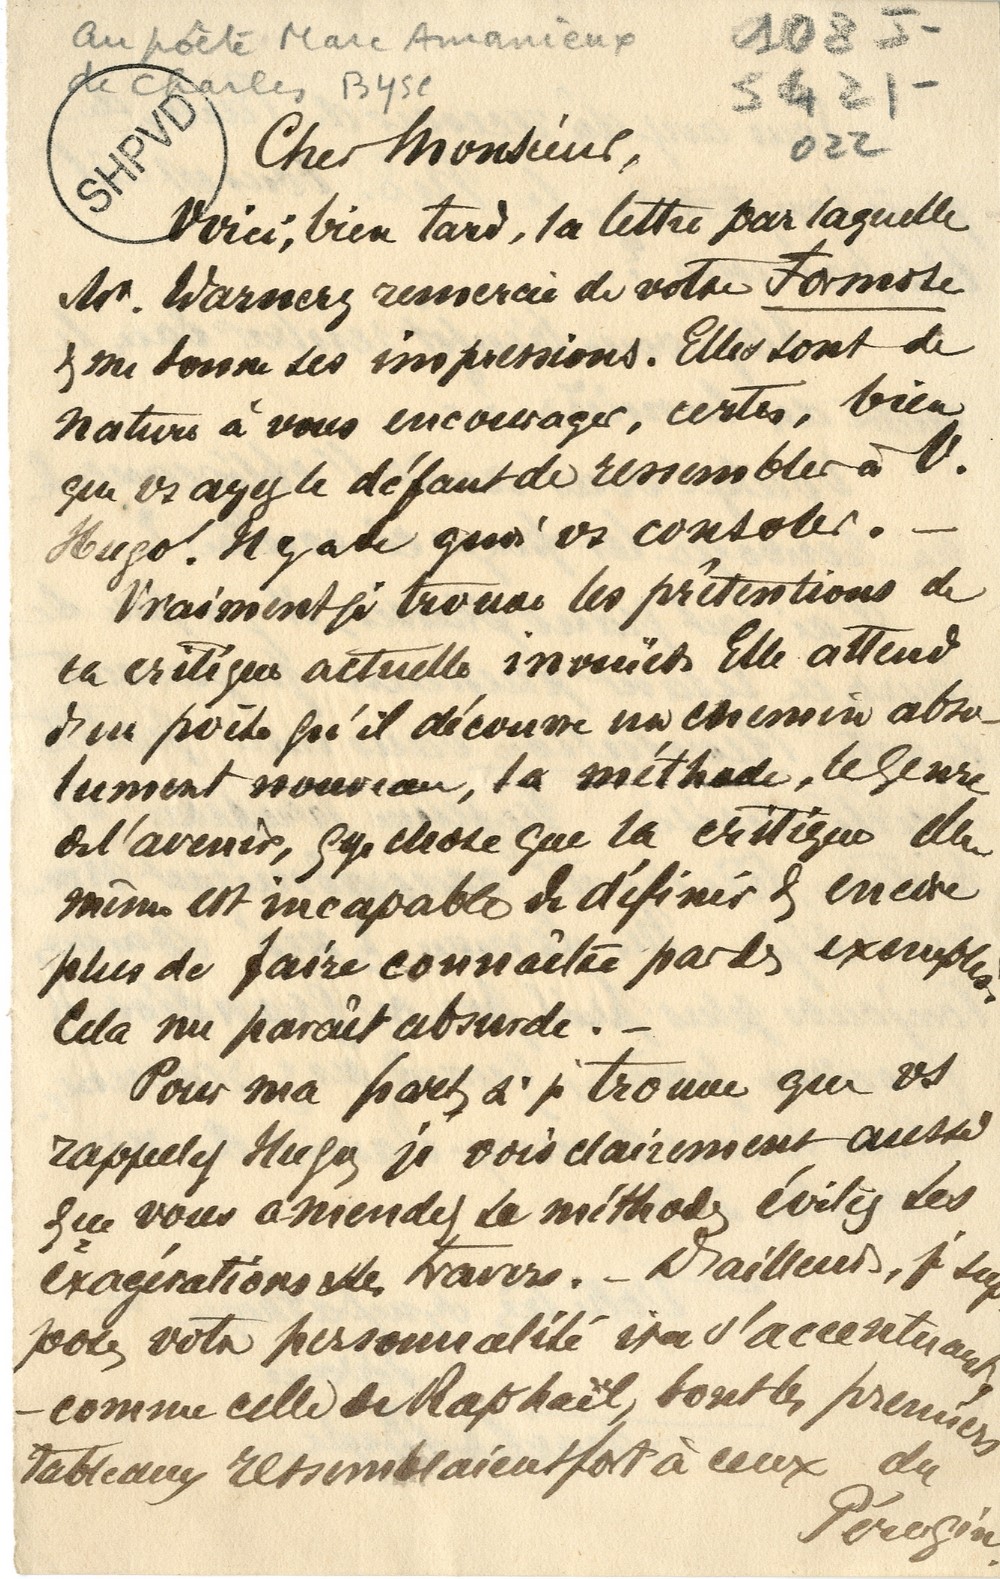 au poète Marc Amanieux
de Charles Byse
1083-
5421-
022
SHPVD
Cher Monsieur,
Voici, bien tard, la lettre par laquelle
Mr. Warnery remercie de votre Formose
& me donne ses impressions. Elles sont de
nature à vous encourager, certes, bien
que vs ayez le défaut de ressembler à V.
Hugo! Il y a de quoi vs consoler. —
Vraiment je trouve les prétentions de
la critique actuelle inouïes. Elle attend
d'un poète qu'il découvre un chemin abso-
lument nouveau, la méthode, le genre
de l'avenir, qq. chose que la critique elle
même est incapable de définir & encore
plus de faire connaître par des exemples.
Cela me paraît absurde. —
Pour ma part, si je trouve que vs
rappelez Hugo, je vois clairement aussi
que vous amendez sa méthode, évitez ses
exagérations, ses travers. — D'ailleurs, je sup
pose, votre personnalité ira s'accentuant,
— comme celle de Raphaël, dont les premiers
tableaux ressemblaient fort à ceux du
Pérugin.